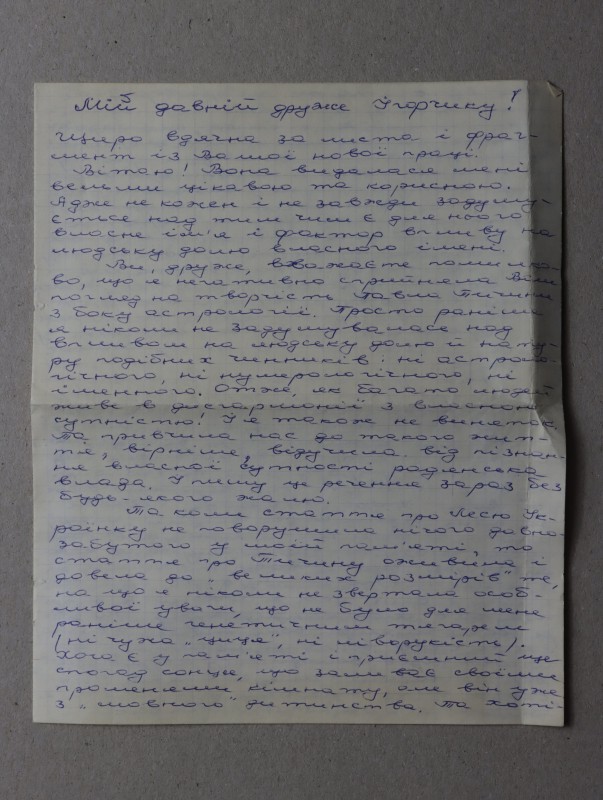 Мій давній друже Ігорчику!
Щиро вдячна за листа і фраг-
мент із Вашої нової праці.
Вітаю! Вона видалася мені
вельми цікавою та корисною.
Адже не кожен і не завжди задуму-
ється над тим чим є для нього
власне ім'я і фактор впливу на
людську долю власного імені.
Ви, друже, вважаєте помилко-
во, що я негативно сприйняла Ваш
погляд на творчість Павла Тичини
з боку астрології. Просто раніше
я ніколи не задумувалася над
впливом на людську долю й нату-
ру подібних чинників: ні астроло-
гічного, ні нумерологічного, ні
іменного. Отже, як багато людей
живе в дисгармонії з власною
сутністю! І я також не виняток.
Та привчила нас до такого жит-
тя, вірніше, відучила від пізнан-
ня власної сутності радянська
влада. І пишу це речення зараз без
будь-якого жалю.
Та коли стаття про Лесю Ук-
раїнку не поворушила нічого давно-
забутого у моїй пам'яті, то
стаття про Тичину оживила і
довела до "великих розмірів" те,
на що я ніколи не звертала особ-
ливої уваги, що не було для мене
раніше генетичним тягарем
(ні чужа "циця", ні ліворукість).
Хоча є у пам'яті і приємний ще
спогад сонця, що заливає своїми
променями кімнату, але він уже
з "мовного" дитинства. Та хоті-